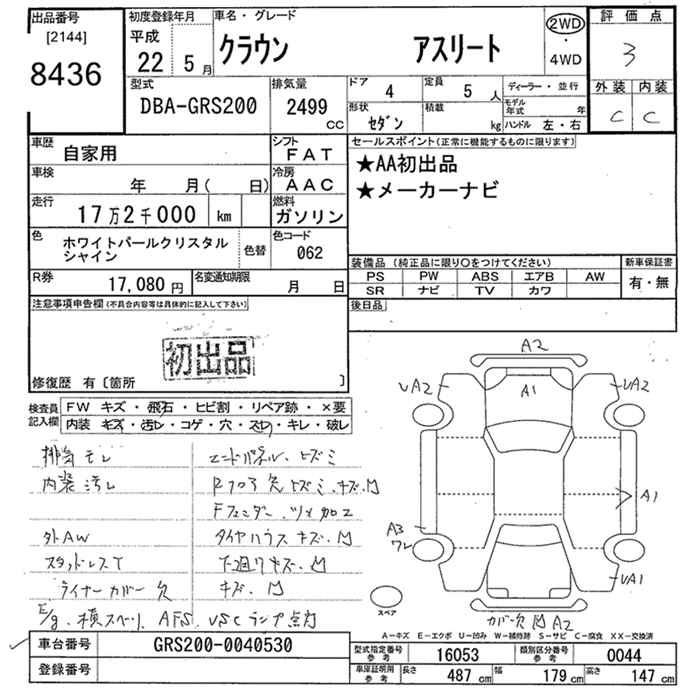 出品番号
[2144]
8436
初度登録年月
平成
22 5 月
車名・グレード
クラウン アスリート
2WD
・
4WD
評価点
3
外装 内装
C C
型式
DBA-GRS200
排気量
2499
CC
ドア
4
定員
5 人
形状
セダン
積載
kg
ディーラー・並行
モデル年式 年
ハンドル 左・右
車歴
自家用
シフト
FAT
車検
年 月( 日)
冷房
AAC
走行
17万2千000 km
燃料
ガソリン
色
ホワイトパールクリスタル
シャイン
色替
色コード
062
R券
17,080 円
名変通知期限
月 日
セールスポイント(正常に機能するものに限ります)
★AA初出品
★メーカーナビ
装備品 (純正品に限り○をつけてください)
PS PW ABS エアB AW
SR ナビ TV カワ
新車保証書
有・無
後日品
注意事項申告欄(不具合内容等は具体的に記入して下さい)
初出品
修復歴 有〔箇所 〕
検査員
記入欄
FW キズ・飛石・ヒビ割・リペア跡・×要
内装 キズ・汚レ・コゲ・穴・スレ・キレ・破レ
排気モレ
内装汚レ
外AW
スタッドレスT
ライナーカバー欠
エンドパネル、ヒズミ
Fフェンダー、ツメ加工
タイヤハウスキズ、凹
下廻りキズ、凹
キズ、凹
E/g、横スベリ、AFS、VSCランプ点灯
A2
A1
UA2
UA2
A1
A3
ワレ
UA1
カバー欠 凹 A2
スペア
A-キズ E-エクボ U-凹み W-補修跡 S-サビ C-腐食 XX-交換済
車台番号
GRS200-0040530
登録番号
型式指定番号
参考
16053
類別区分番号
参考
0044
車庫証明用
参考
長さ 487 cm 幅 179 cm 高さ 147 cm